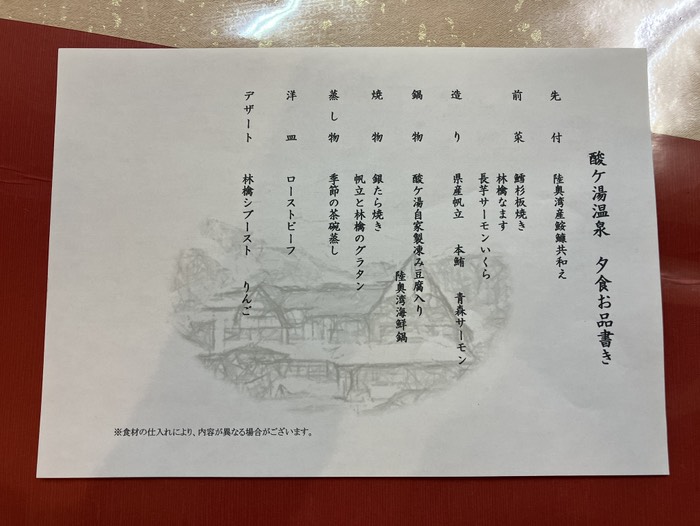 酸ケ湯温泉　夕食お品書き
先付　陸奥湾産鮟鱇共和え
前菜　鱈杉板焼き
林檎なます
長芋サーモンいくら
造り　県産帆立　本鮪　青森サーモン
鍋物　酸ケ湯自家製凍み豆腐入り
陸奥湾海鮮鍋
焼物　銀たら焼き
帆立と林檎のグラタン
蒸し物　季節の茶碗蒸し
洋皿　ローストビーフ
デザート　林檎シブースト　りんご
※食材の仕入れにより、内容が異なる場合がございます。